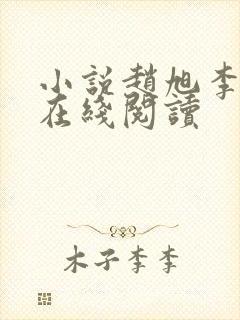 小說趙旭李
在綫閱讀
木子李李